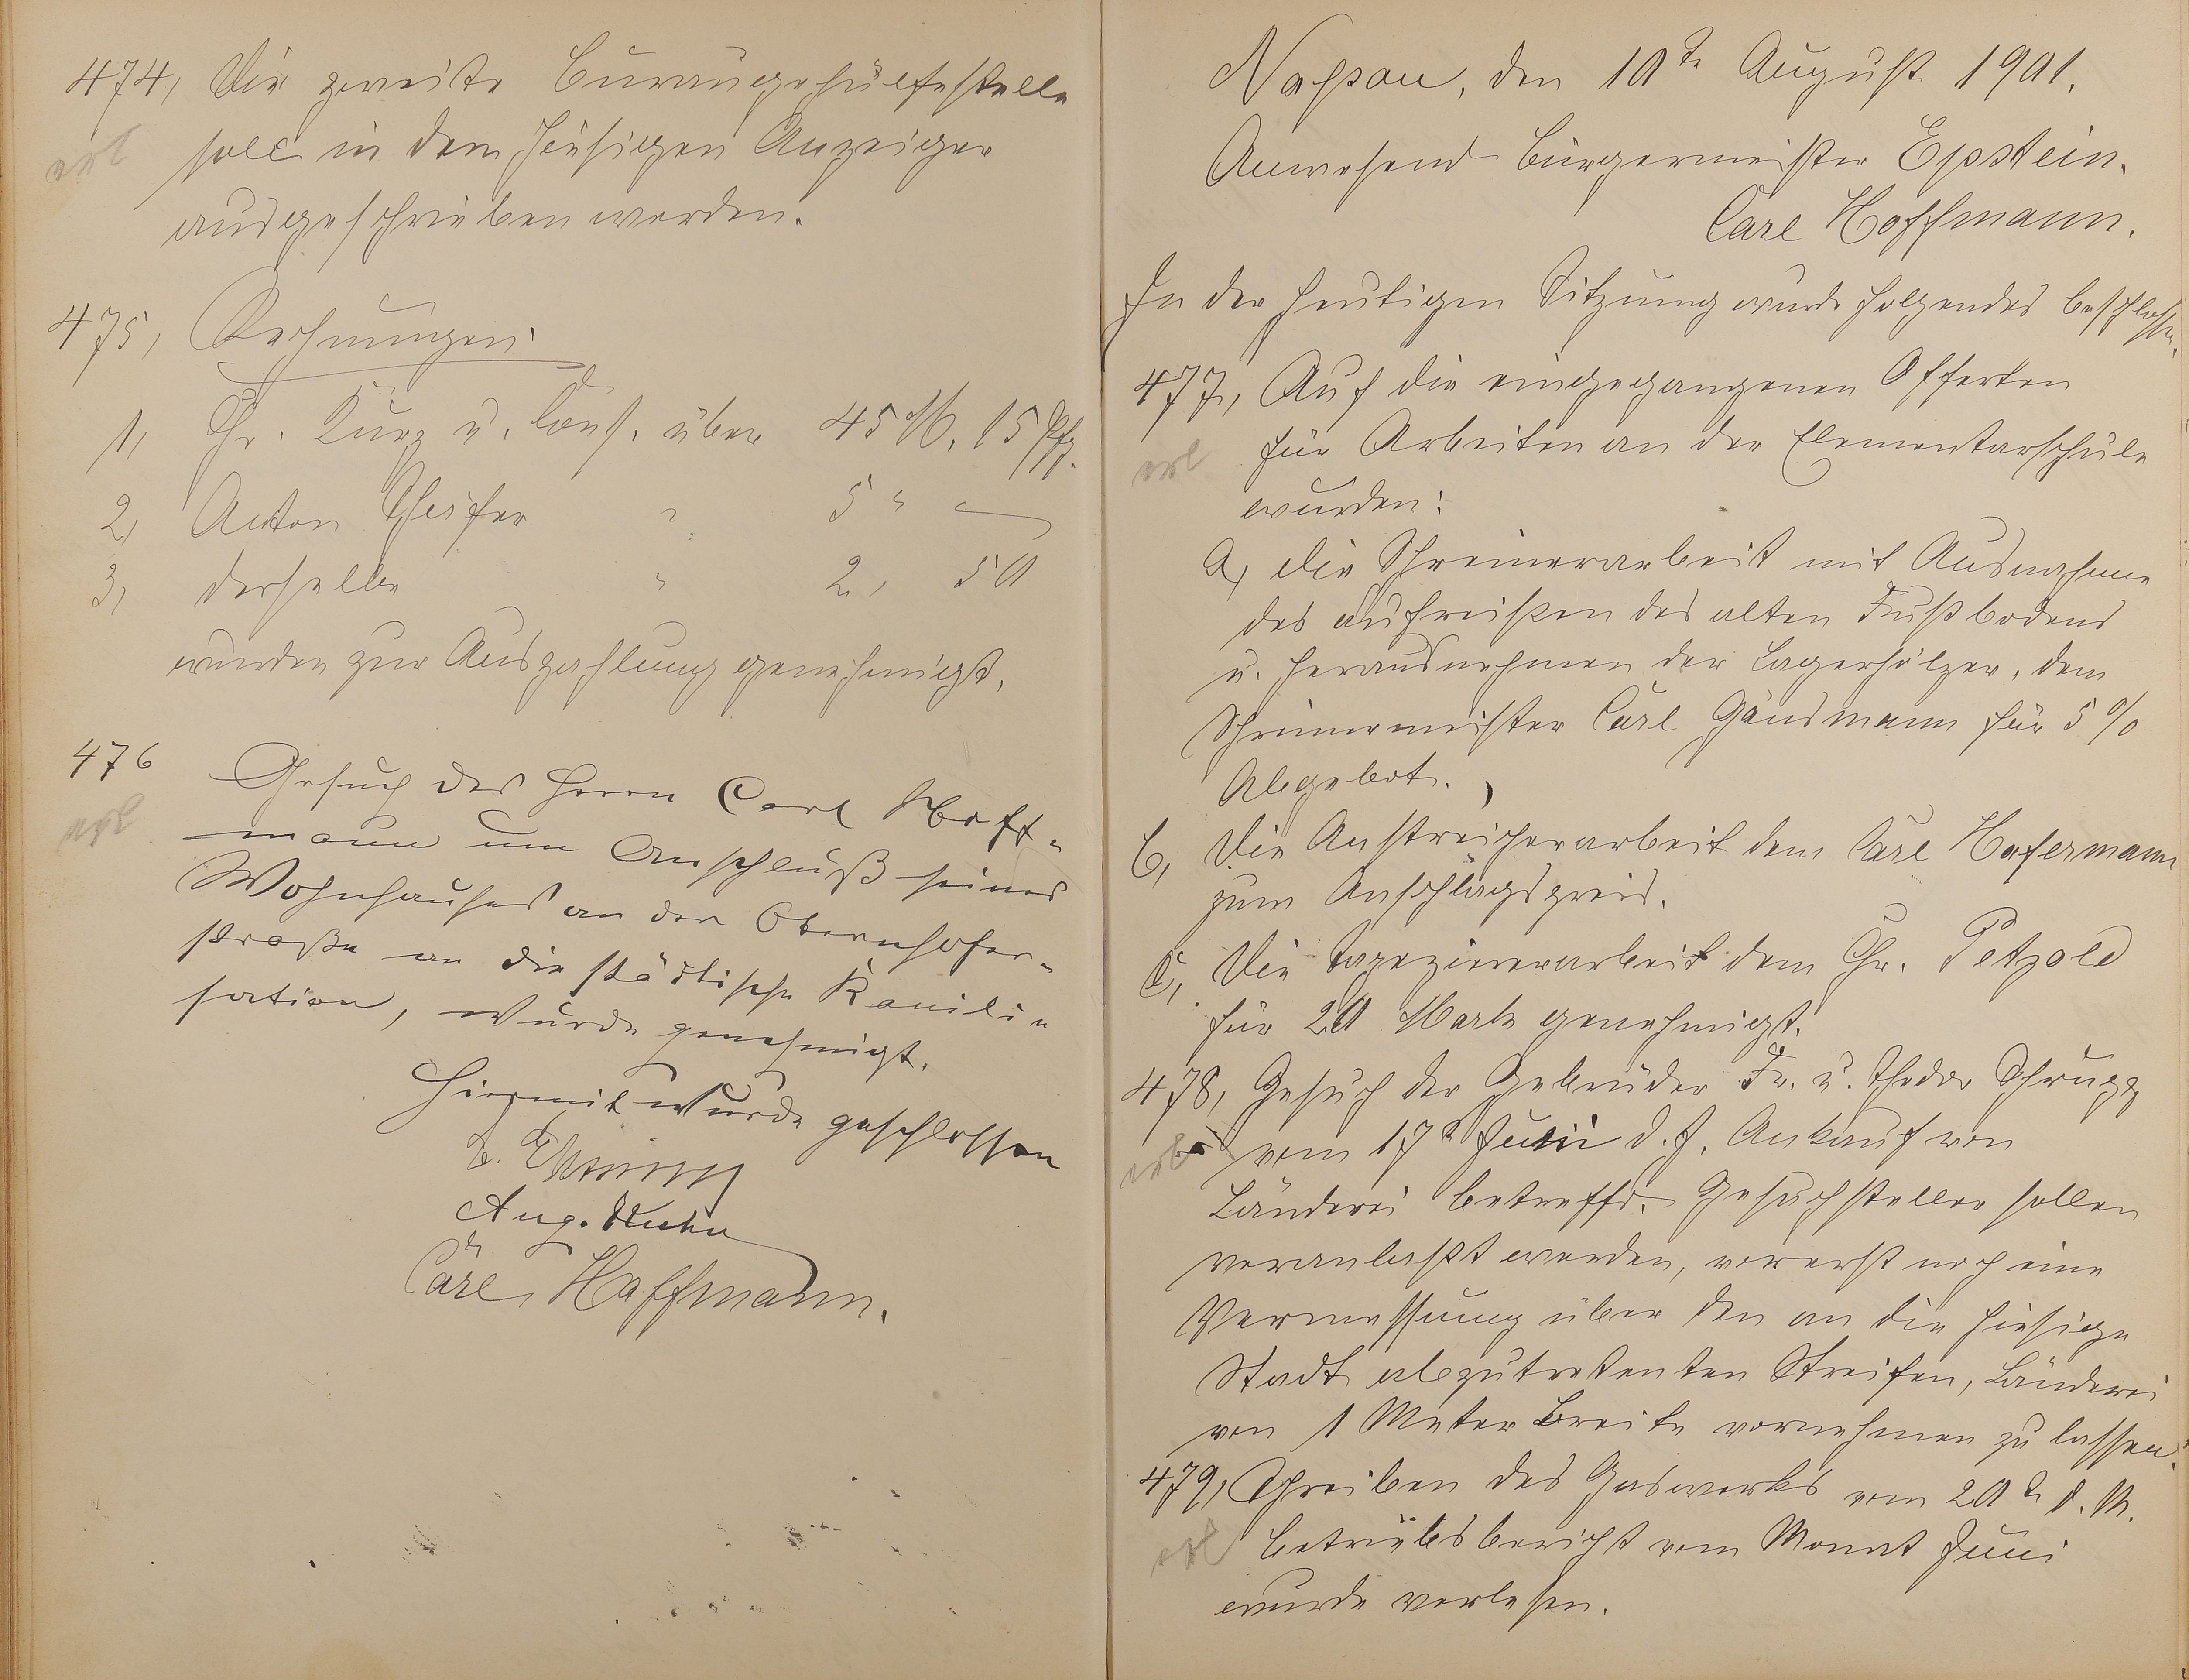 474, Die zweite Bureaugehülfestelle
erl
soll in dem hiesigen Anzeiger
ausgeschrieben werden.
475, Rechnungen:
1, Chr. Kurz u. Cons. über 45 M. 15 Pfg.
2, Anton " 5 " —
3, derselbe " 2, 50
wurden zur Auszahlung genehmigt.
476 Gesuch des Herrn Carl Hoff-
erl
mann um Anschluß seines
Wohnhauses an der Obernhofer-
straße an die städtische Kanili-
sation, wurde genehmigt.
Hiermit wurde geschlossen
Aug. Kuhn
Carl Hoffmann.
Nassau, den 10te August 1901.
Anwesend Bürgermeister Epstein.
Carl Hoffmann.
In der heutigen Sitzung wurde folgendes beschlossen.
477, Auf die eingegangenen Offerten
erl
für Arbeiten an der Elementarschule
wurden:
a, die Schreinerarbeit mit Ausnahme
des aufreißen des alten Fußbodens
u. herausnehmen der Lagerhölzer, dem
Schreinermeister Carl Gänsmann für 5 %
Abgebot.
b, Die Anstreicherarbeit dem Carl Hafermann
zum Anschlagspreis.
c, Die Tapeziererarbeit dem Chr. Petzold
für 20 Mark genehmigt.
478, Gesuch der Gebrüder Fr. u. Theodor
erl
vom 17t Juni d. J. Ankauf von
Länderei betreffd. Gesuchsteller sollen
veranlaßt werden, vorerst noch eine
Vermessung über den an die hiesige
Stadt abzutretenten Streifen, Länderei
von 1 Meter Breite vornehmen zu lassen.
479, Schreiben des Gaswerks vom 20t d. M.
erl
Betriebsbericht vom Monat Juni
wurde verlesen.